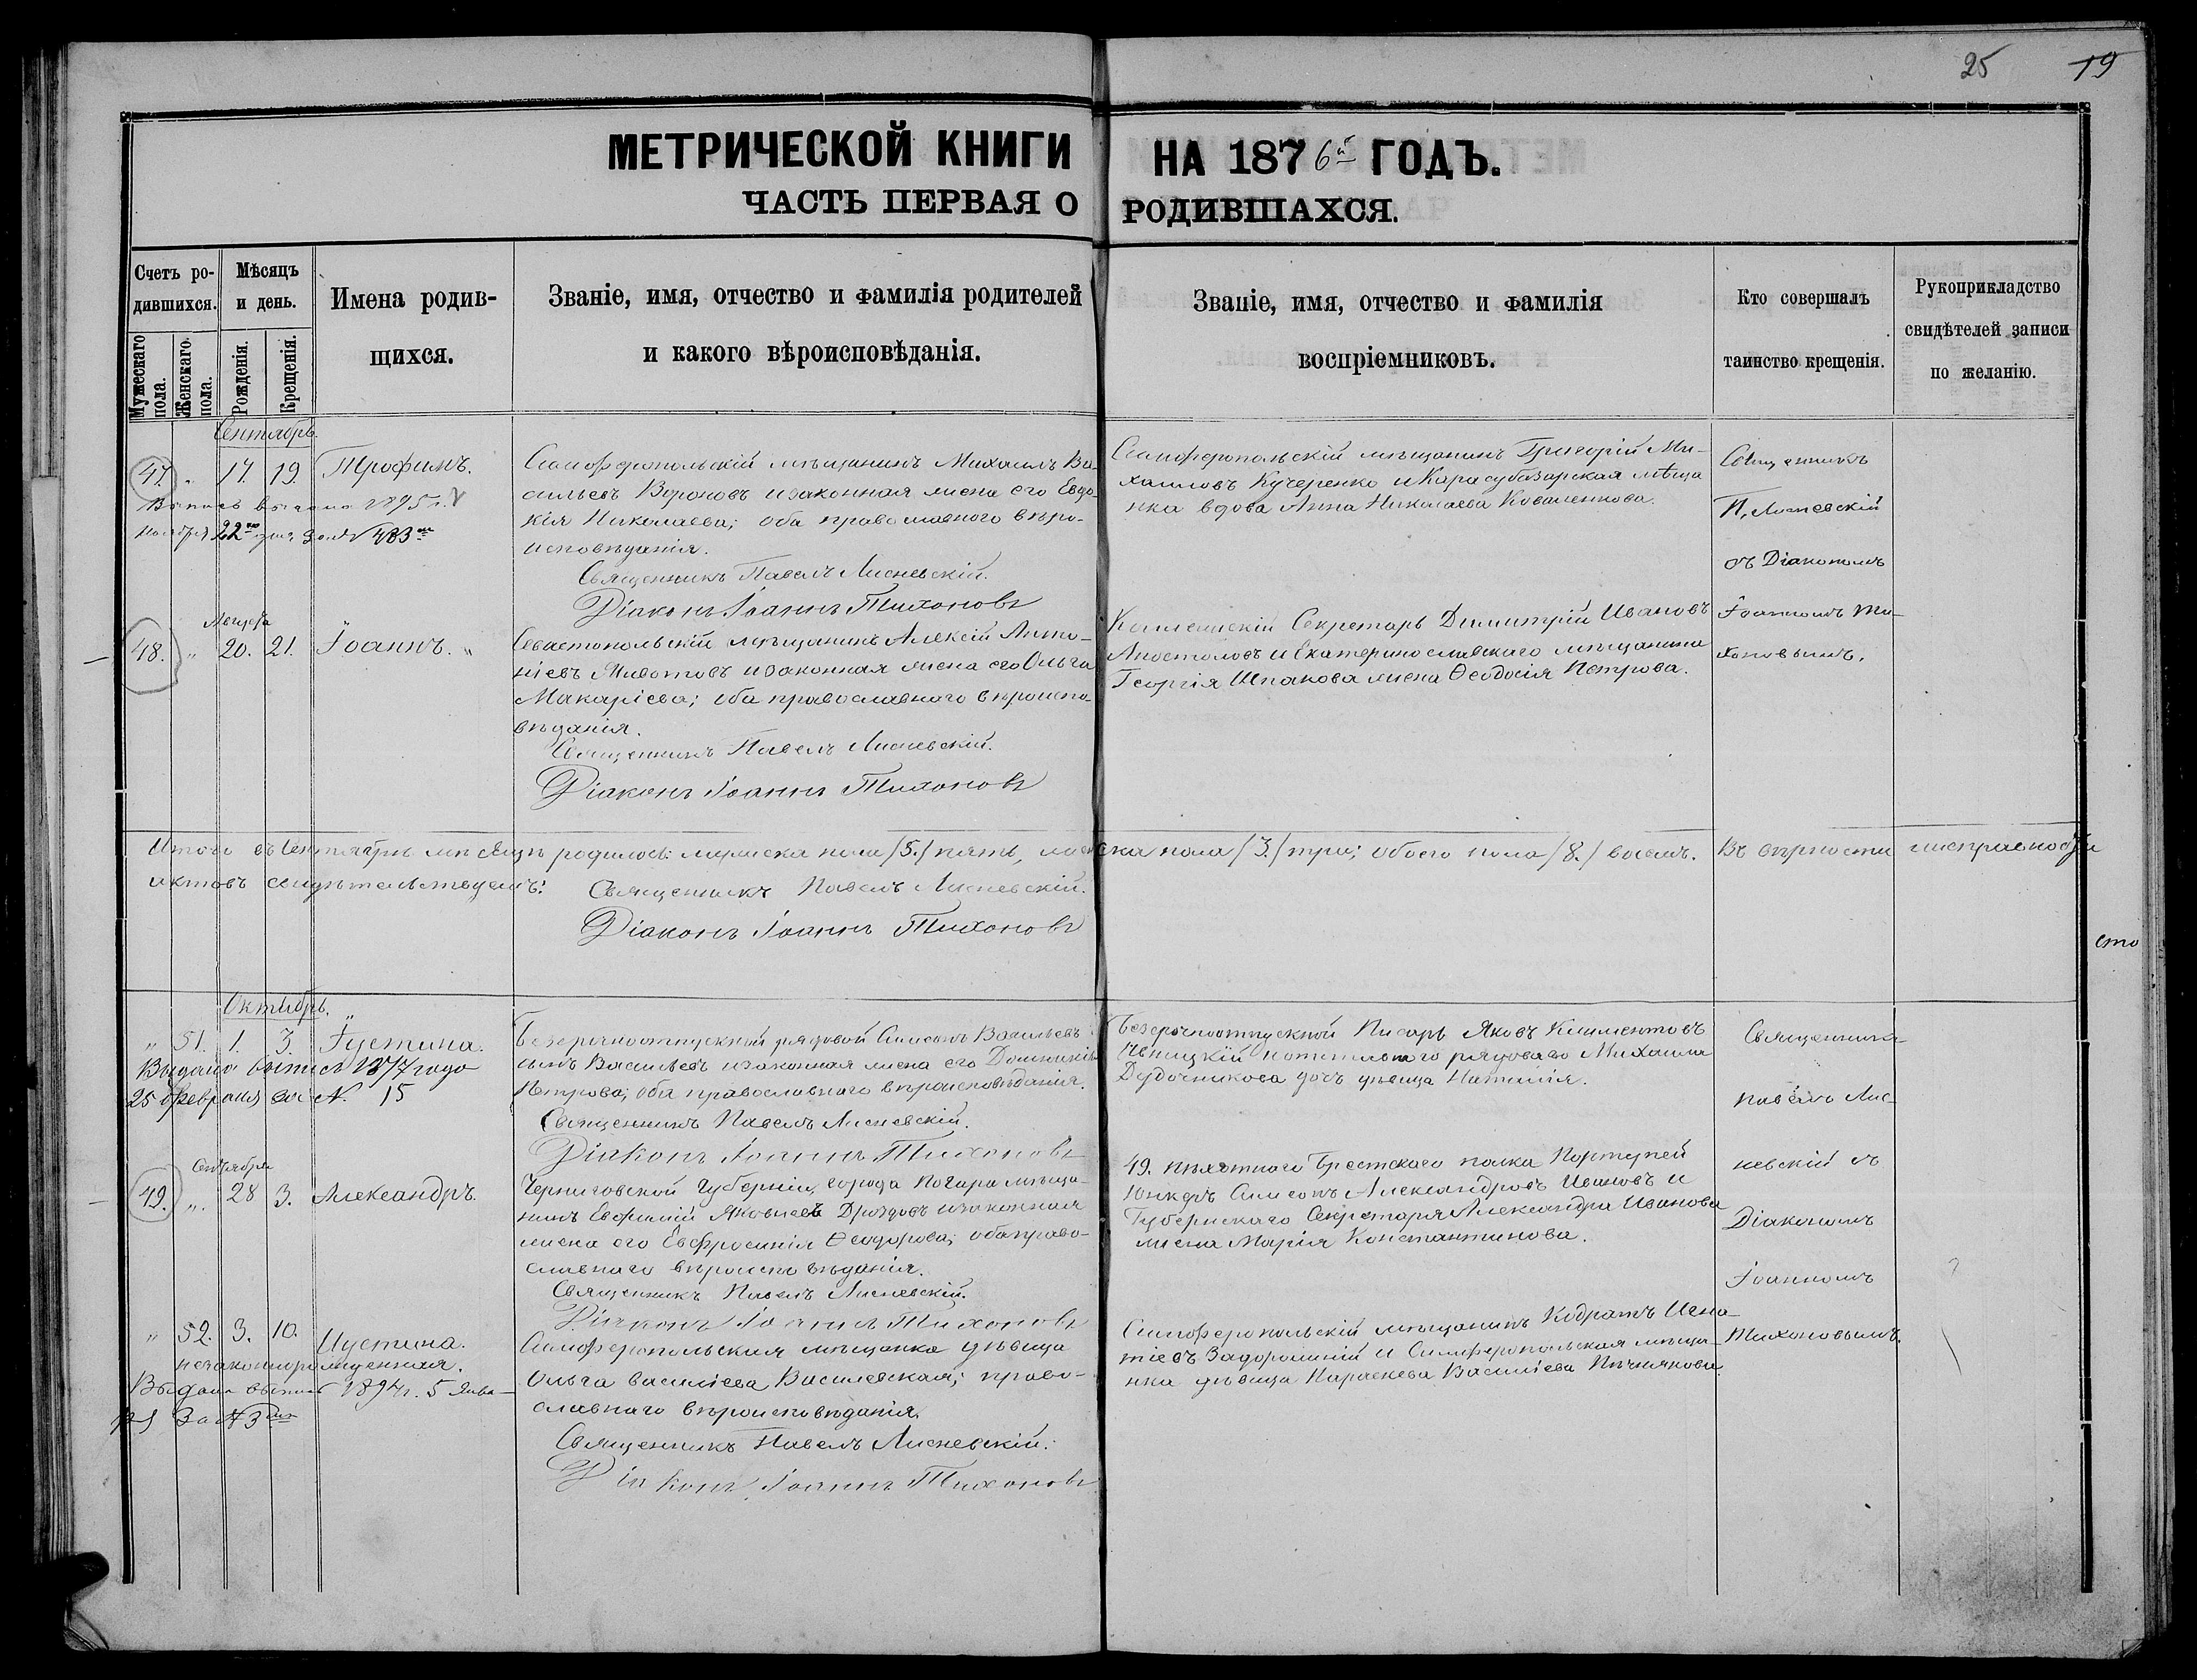 25 19
МЕТРИЧЕСКОЙ КНИГИ НА 1876й ГОДЪ.
ЧАСТЬ ПЕРВАЯ О РОДИВШАХСЯ.
Счетъ родившихся.
Мужескаго пола.
Женскаго пола.
Мѣсяцъ и день.
Рожденія.
Крещенія.
Имена родившихся.
Званіе, имя, отчество и фамилія родителей
и какого вѣроисповѣданія.
Званіе, имя, отчество и фамилія
воспріемниковъ.
Кто совершалъ
таинство крещенія.
Рукоприкладство
свидѣтелей записи
по желанію.
Сентябрь.
47. " 17. 19. Трофимъ.
Выпись выдана 1895 г.
Ноября 22го дня за № 483м
Симферопольскій мѣщанинъ Михаилъ Ва-
сильевъ Вороновъ и законная жена его Евдо-
кія Николаева; оба православнаго вѣро-
исповѣданія.
Священникъ Павелъ Лисневскій.
Діаконъ Іоаннъ Тихоновъ
Симферопольскій мѣщанинъ Григорій Ми-
хаиловъ Кучеренко и Карасубазарская мѣща
нка вдова Анна Николаева Коваленкова.
Священникъ
П. Лисневскій
съ Діакономъ
Іоанномъ Ти-
хоновымъ.
Августа
48. " 20. 21. Іоаннъ. "
Севастопольскій мѣщанинъ Алексій Анто-
ніевъ Животовъ и законная жена его Ольга
Макаріева; оба православнаго вѣроиспо-
вѣданія.
Священникъ Павелъ Лисневскій.
Діаконъ Іоаннъ Тихоновъ
Секретарь Димитрій Ивановъ
Апостоловъ и Екатеринославскаго мѣщанина
Георгія Шпакова жена Ѳеодосія Петрова.
Итого въ Сентябрѣ мѣсяцѣ родилось: мужеска пола /5./ пять, женска пола /3./ три; обоего пола /8./ восемъ. Въ вѣрности и исправности
актовъ свидѣтельствуемъ: Священникъ Павелъ Лисневскій.
Діаконъ Іоаннъ Тихоновъ
сто
Октябрь.
" 51. 1. 3. Іустина.
Выдана выпись 1877 года
25 февраля за № 15
Безсрочноотпускной рядовой Симеонъ Васильевъ
сынъ Васильевъ и законная жена его Домникія
Петрова; оба православнаго вѣроисповѣданія.
Священникъ Павелъ Лисневскій.
Діаконъ Іоаннъ Тихоновъ
Безсрочноотпускной Писарь Яковъ Климентовъ
рядоваго Михаила
Дудочникова дочь дѣвица Наталія.
Священникъ
Павелъ Лис-
невскій съ
Діакономъ
Іоанномъ
Тихоновымъ.
Сентября
49. " 28 3. Александръ.
Черниговской Губерніи, города Погара мѣща-
нинъ Евфимій Яковлевъ Дроздовъ и законная
жена его Евфросинія Ѳеодорова; оба право-
славнаго вѣроисповѣданія.
Священникъ Павелъ Лисневскій.
Діаконъ Іоаннъ Тихоновъ
49. пѣхотнаго Брестскаго полка Портупей
Юнкеръ Симеонъ Александровъ Ивановъ и
Губернскаго Секретаря Александра Иванова
жена Марія Константинова.
" 52. 3. 10. Иустина.
незаконнорожденная.
Выдана выпись 1894 г. 5 Янва-
ря За № 3мъ
Симферопольская мѣщанка дѣвица
Ольга Василіева Василевская; право-
славнаго вѣроисповѣданія.
Священникъ Павелъ Лисневскій.
Діаконъ Іоаннъ Тихоновъ
Симферопольскій мѣщанинъ Кодратъ Игна-
тіевъ Задорожный и Симферопольская мѣща-
нка дѣвица Параскева Василіева